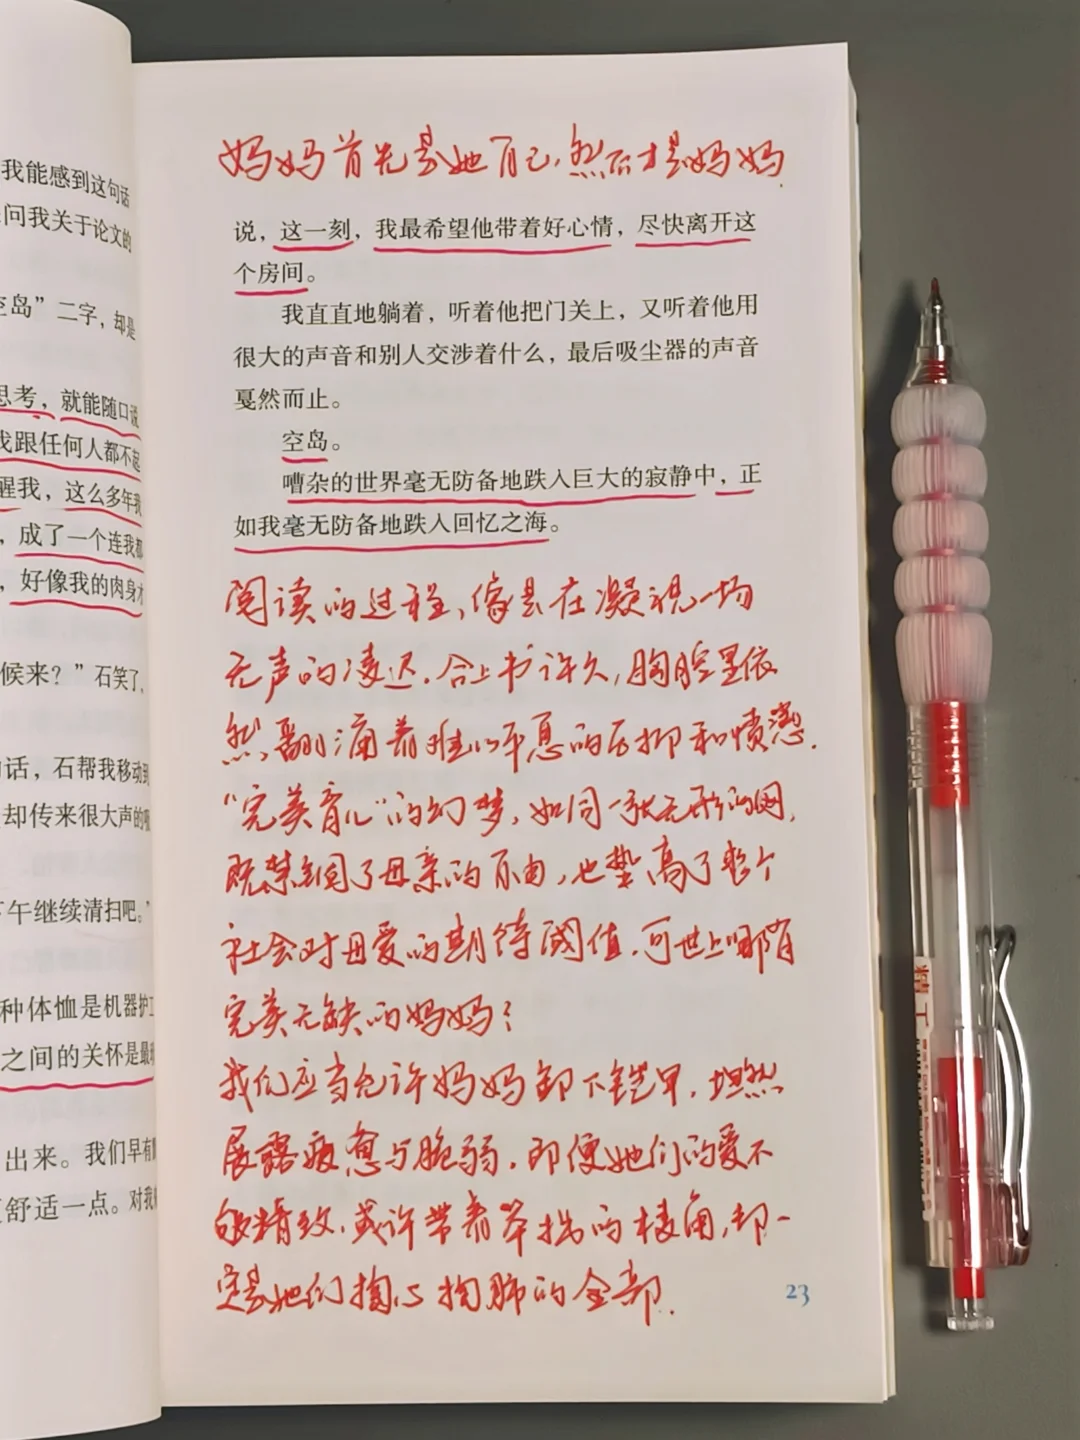 我能感到这句话
问我关于论文的
空岛”二字，却是
思考，就能随口说
我跟任何人都不起
醒我，这么多年我
，成了一个连我都
，好像我的肉身才
候来？”石笑了，
话，石帮我移动到
却传来很大声的嘈
下午继续清扫吧。”
种体恤是机器护工
之间的关怀是最
出来。我们早有
舒适一点。对我
妈妈首先是她自己，然后才是妈妈
说，这一刻，我最希望他带着好心情，尽快离开这
个房间。
我直直地躺着，听着他把门关上，又听着他用
很大的声音和别人交涉着什么，最后吸尘器的声音
戛然而止。
空岛。
嘈杂的世界毫无防备地跌入巨大的寂静中，正
如我毫无防备地跌入回忆之海。
阅读的过程，像是在凝视一场
无声的凌迟。合上书许久，胸腔里依
然翻涌着难以平息的压抑和愤懑。
“完美育儿”的幻梦，如同一张无形的网，
既禁锢了母亲的自由，也垫高了整个
社会对母爱的期待阈值。可世上哪有
完美无缺的妈妈？
我们应当允许妈妈卸下铠甲，坦然
展露疲惫与脆弱。即便她们的爱不
够精致，或许带着笨拙的棱角，却一
定是她们掏心掏肺的全部。
23
精工